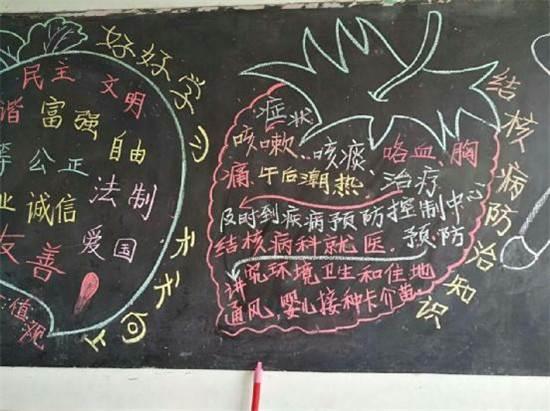 好好学习 天天向上
民主 文明
谐 富强
等 公正 自由
业 诚信 法制
友善 爱国
值观
结核病防治知识
症状
咳嗽、咳痰、咯血、胸
痛、午后潮热 治疗
及时到疾病预防控制中心
结核病科就医。预防
讲究环境卫生和住地
通风,婴儿接种卡介苗